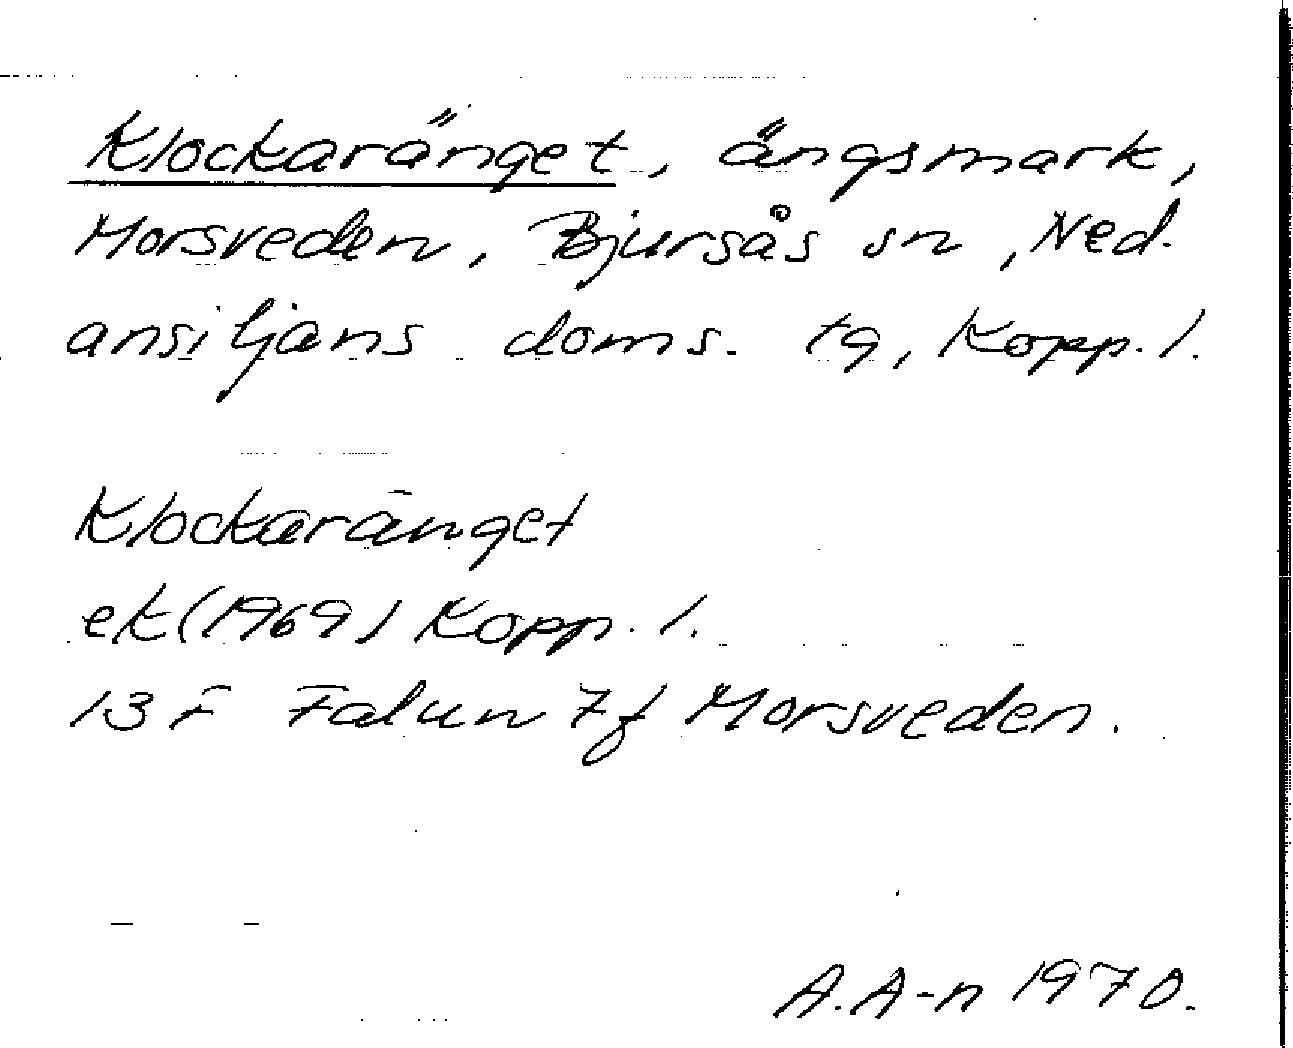 Klockaränget, ängsmark,
Morsveden, Bjursås sn, Ned.
ansiljans doms. tg, Kopp. l.
Klockaränget
ek (1969) Kopp. l.
13 F Falun 7f Morsveden.
A.A-n 1970.